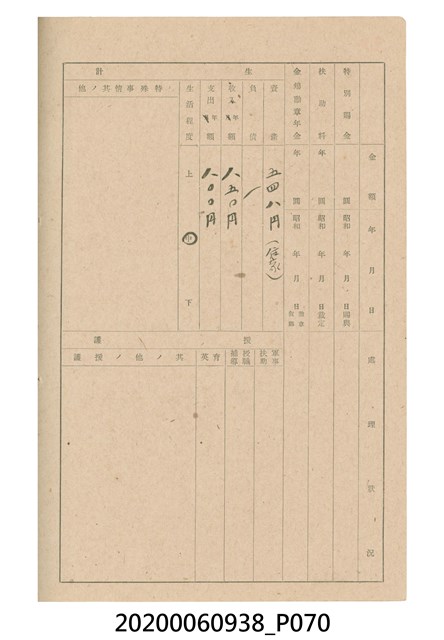 金額 年月日 處理狀況
特別賜金 圓 昭和 年 月 日 國興
扶助料 年 圓 昭和 年 月 日 裁定
金鵄勳章年金 年 圓 昭和 年 月 日
生計
資產 五四八円(住家)
負債 /
收入 年額 八五〇円
支出 年額 八〇〇円
生活程度 上 中 下
特殊事情其ノ他
援護
軍事扶助
授職補導
育英
其ノ他ノ援護
20200060938_P070